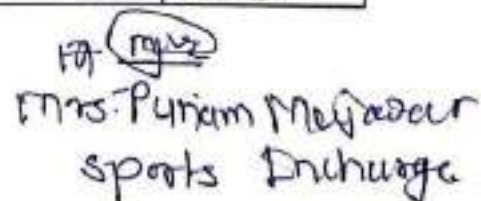 Mrs. Punam Meljadar
Sports Incharge